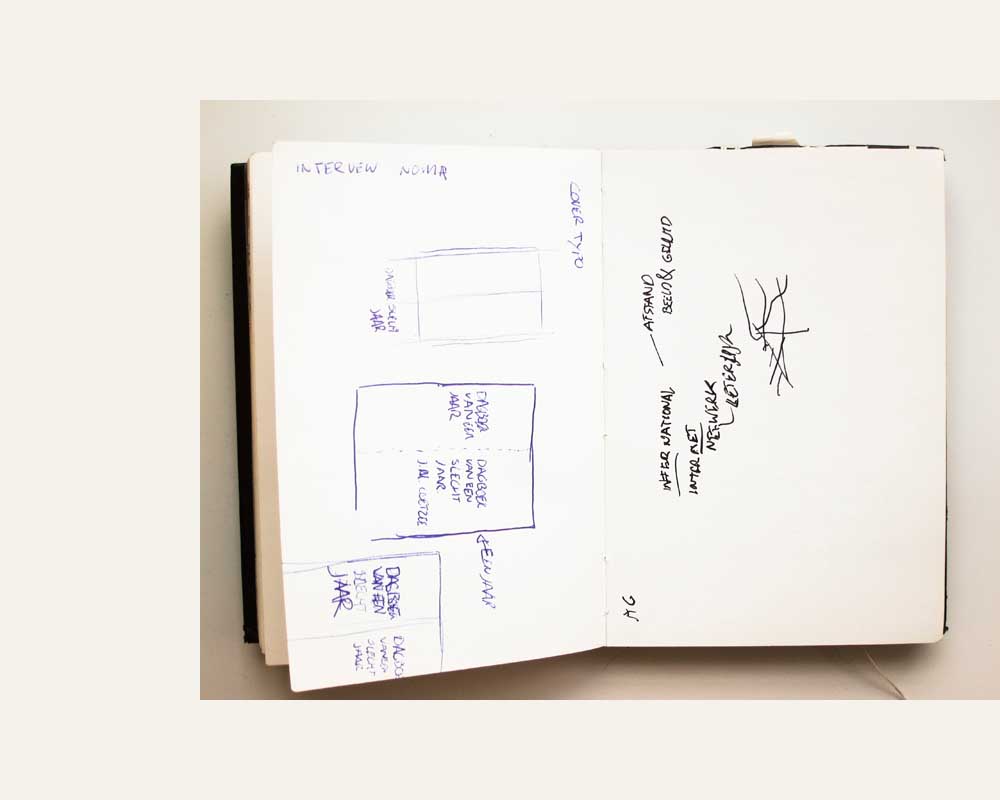 INTERVIEW
COVER TYPO
JAAR
DAGBOEK
VAN EEN
JAAR
DAGBOEK
VAN EEN
SLECHT
JAAR
J.M. COETZEE
EEN JAAR
DAGBOEK
VAN EEN
SLECHT
JAAR
SLECHT
JAAR
AFSTAND
BEELD & GELUID
INTERNATIONAL
INTERNET
NETWERK